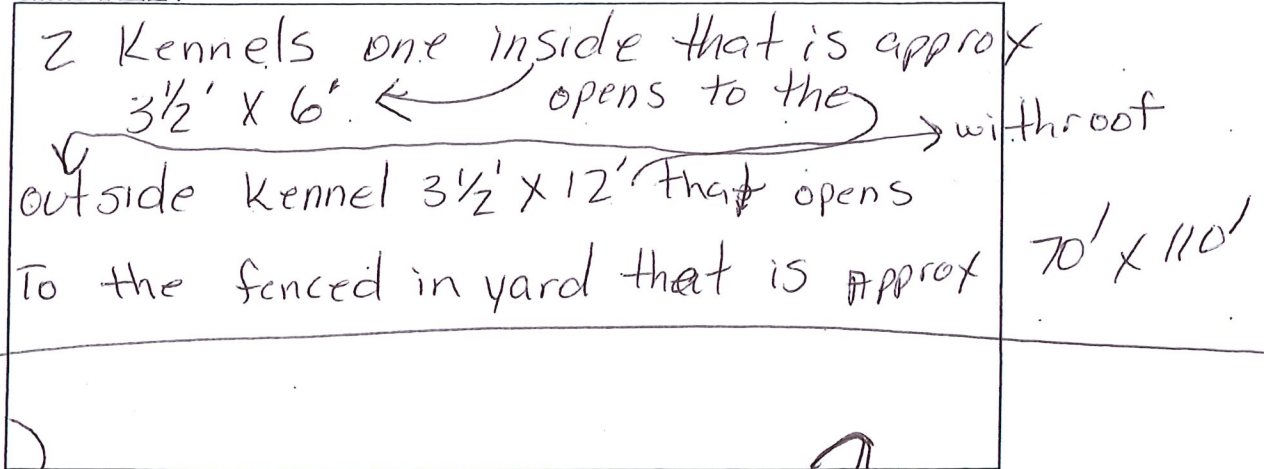 2 Kennels one inside that is approx
3½' X 6'. opens to the
withroof
outside Kennel 3½' X 12' that opens
To the fenced in yard that is Approx 70' x 110'